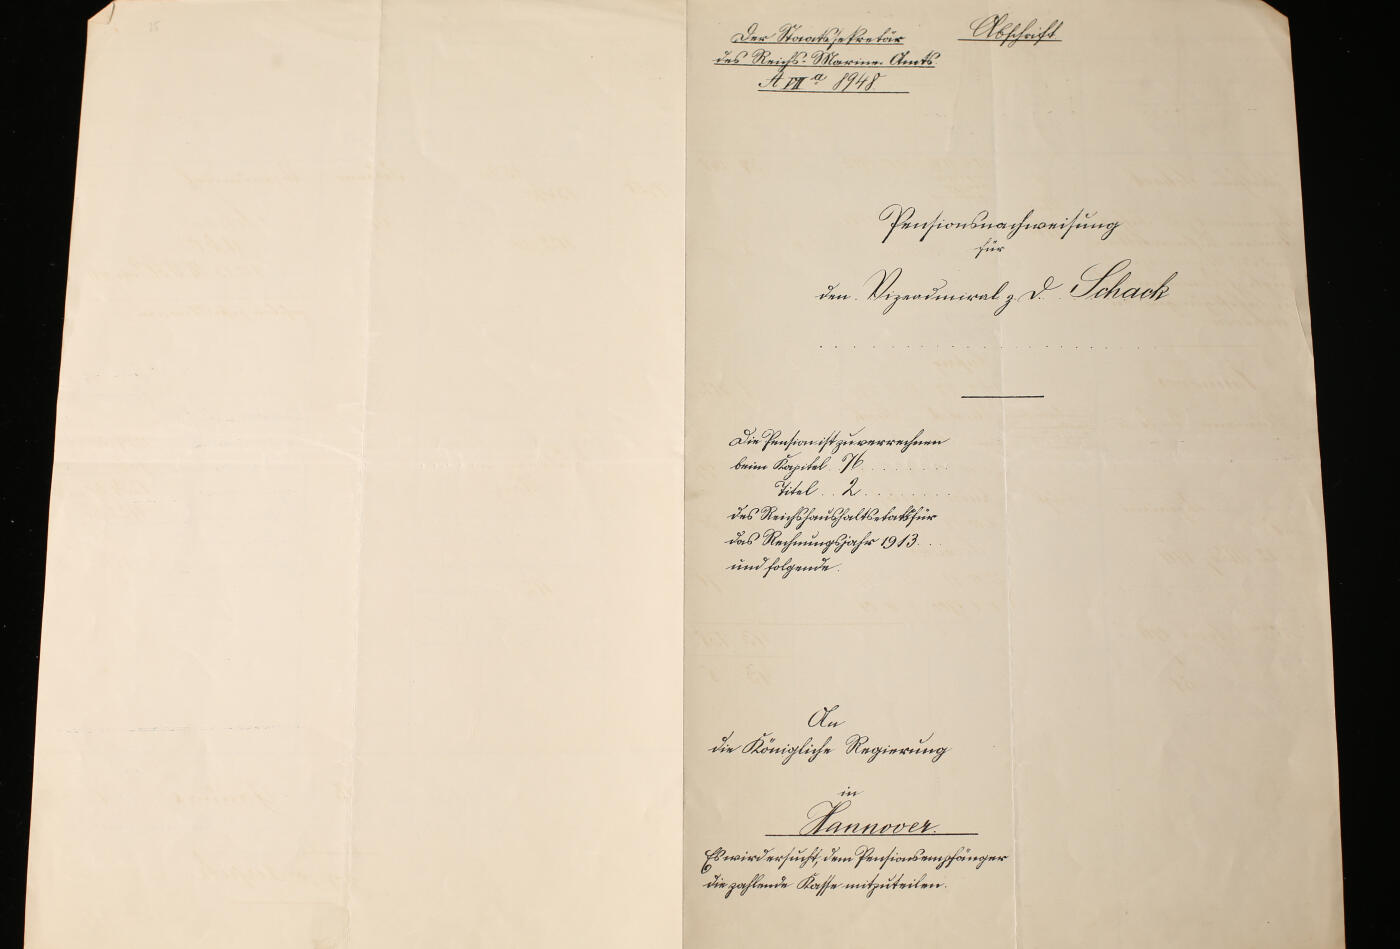 Der Staatssekretär
des Reichs-Marine-Amts
A VII a 8948.
Abschrift
Pensionsnachweisung
für
den Vizeadmiral z. D. Schack
Die Pension ist zu verrechnen
beim Kapitel 76
Titel 2
des Reichshaushaltsetats für
das Rechnungsjahr 1913
und folgende.
An
die Königliche Regierung
in
Hannover.
Es wird ersucht, dem Pensionsempfänger
die zahlende Kasse mitzuteilen.